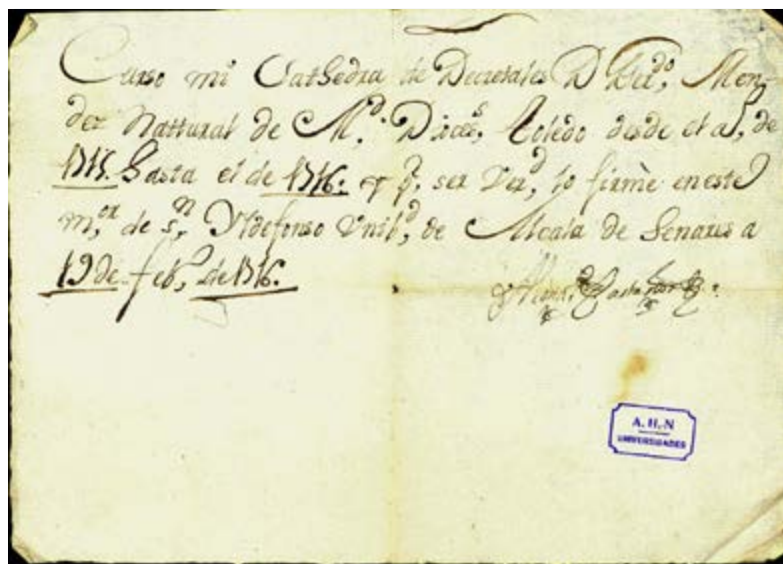 Curso mi Cathedra de Decretales D Ber,do Men-
dez Nattural de M,d. Dioces,s Toledo desde el a,o de
1715. hasta el de 1716: y p,r ser Ver,d lo firmè en este
m,or de s,n Yldefonso Unib,d de Alcala de henares a
19 de feb,o de 1716.
A. H. N
UNIVERSIDADES